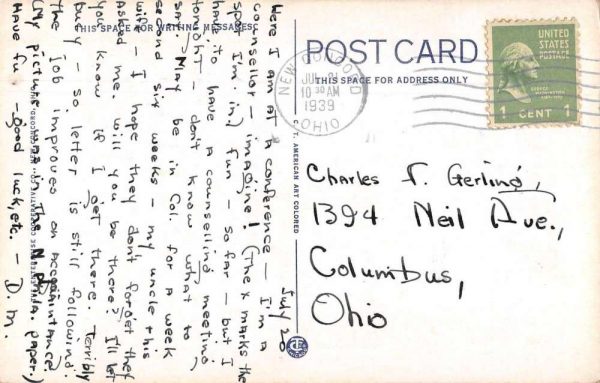 THIS SPACE FOR WRITING MESSAGES
July 20
Here I am at a conference - I'm a
counsellor - imagine! (The x marks the
spot I'm in) fun - so far - but I
have to have a counselling meeting
tonight - don't know what to
say. May be in Col. for a week
second six weeks - my uncle & his
wife - I hope they don't forget they
asked me. Will you be there? I'll let
you know if I get there. Terribly
busy - so letter is still following.
The job improves on acquaintance.
(My picture was in the N.Ph. paper.)
Have fun - good luck, etc. - D. M.
POST CARD
THIS SPACE FOR ADDRESS ONLY
NEW CONCORD
JUL 21
10 30 AM
1939
OHIO
UNITED
STATES
POSTAGE
GEORGE
WASHINGTON
1 CENT 1
C. T. AMERICAN ART COLORED
Charles F. Gerling,
1394 Neil Ave.,
Columbus,
Ohio